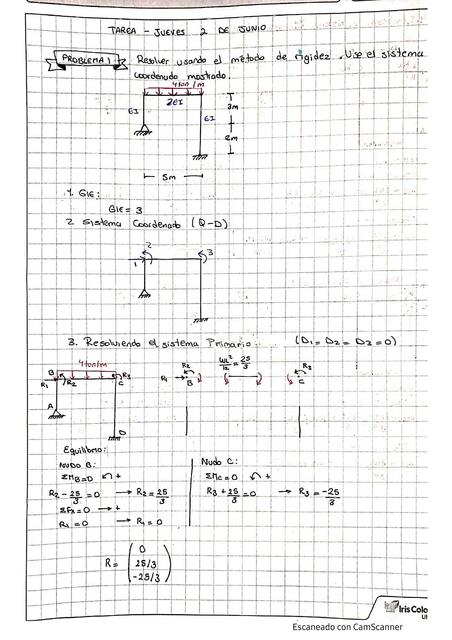 TAREA - JUEVES 2 DE JUNIO
PROBLEMA 1 Resolver usando el método de rigidez. Use el sistema
coordenado mostrado.
4ton/m
EI 2EI EI
3m
2m
5m
1. GIE:
GIE = 3
2. Sistema Coordenado (Q-D)
1 2 3
3. Resolviendo el sistema Primario (D1 = D2 = D3 = 0)
4ton/m
R1 B R2 C R3
A D
R1 R2 B
WL²/12 = 25/3
R3 C
Equilibrio:
NUDO B:
ΣMB=0 +
R2 - 25/3 = 0 → R2 = 25/3
ΣFx=0 → +
R1 = 0 → R1 = 0
Nudo C:
ΣMC=0 +
R3 + 25/3 = 0 → R3 = -25/3
R = (0 25/3 -25/3)
Iris Colo
Escaneado con CamScanner